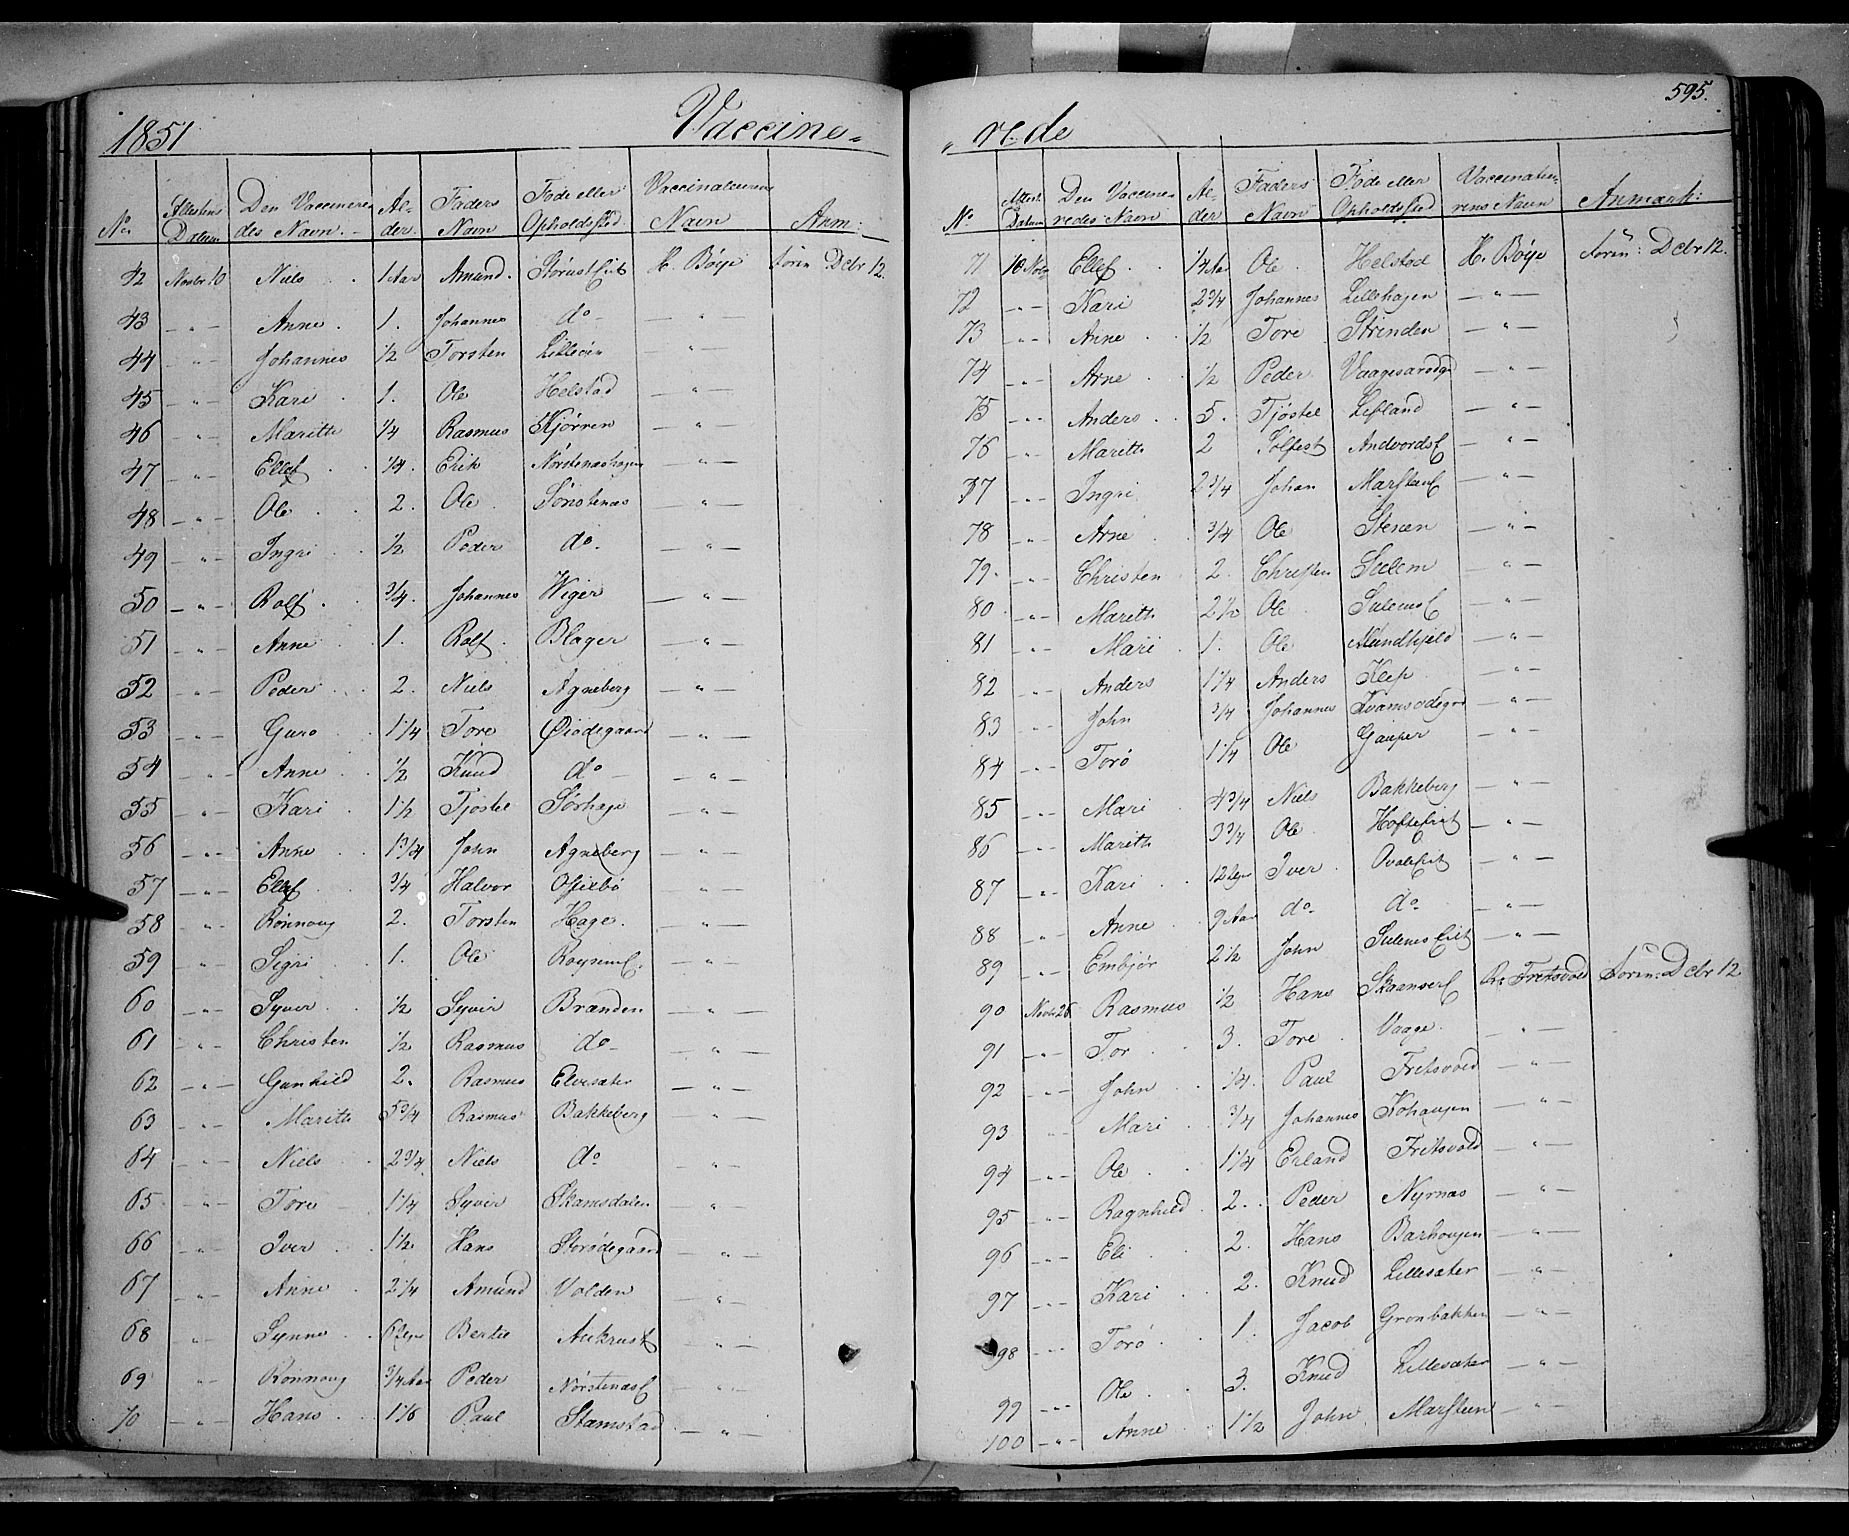 595.
1851 Vaccine-
No. Attestens Datum Den Vaccinere des Navn. Al- der Faders Navn Føde eller Opholdssted Vaccinateurens Navn Anm:
42 Novbr 10 Niels 1 Aar Amund. H. Böye Dcbr 12.
43 " Anne. 1. Johannes do "
44 " Johannes 1/2 Torsten "
45 " Kari 1. Ole Helstad "
46 " Marith 1/4 Rasmus Kjørren "
47 " Ellef 1/4. Erik Norstenæshagen "
48 " Ole 2. Ole Sørstenæs "
49 " Ingri 1/2 Peder do. "
50 " Rolf. 3/4. Johannes Wiger "
51 " Anne 1. Rolf. Blager "
52 " Peder 2. Niels Agneberg "
53 " Guro 1 1/4 Tore Øiødegaard "
54 " Anne 1/2 Knud do "
55 " Kari 1 1/2 Tjostel Sørhage "
56 " Anne 1 3/4 John Agneberg "
57 " Ellef 3/4 Halvor "
58 " Rønnoug 2. Torsten Hage. "
59 " Sigri 1. Ole "
60 " Syver 1/2 Syver Branden "
61 " Christen 1/2 Rasmus do "
62 " Gunhild 2. Rasmus Elvesæter "
63 " Marith 5 3/4 Rasmus Bakkeberg "
64 " Niels 2 3/4 Niels do "
65 " Tore 1 1/4 Syver Skamsdalen "
66 " Iver 1 1/2. Hans Storødegaard "
67 " Anne 2 1/4 Amund Volden "
68 " Synne 6 Uger Aukrust "
69 " Rønnoug 3/4 Aar Peder "
70 " Hans 1 1/6 Paul Stamstad "
" rede
No. Attest. Datum Den Vaccine- redes Navn Al- der Faders Navn Føde eller Opholdssted Vaccinateu- rens Navn Anmærk:
71 10 Novbr Ellef 1/4 Aar Ole. Helstad H. Böye Dcbr 12.
72 " Kari 2 3/4 Johannes Lillehagen "
73 " Anne 1/2 Tore Strinden "
74 " Arne 1/2 Peder "
75 " Anders 5. Tjøstel Lefland "
76 " Marith 2 Solfest "
77 " Ingri 2 3/4 Johan "
78 " Arne 3/4 Ole "
79. " Christen 2. Christen Sulem "
80 " Marith 2 1/2 Ole "
81 " Mari 1. Ole "
82 " Anders 1 1/4 Anders "
83 " John 3/4 Johannes "
84 " Torø 1 1/4 Ole Gauper "
85 " Mari 4 3/4 Niels Bakkeberg "
86 " Marith 3 3/4 Ole "
87 " Kari 12 Uger Iver "
88 " Anne 9 Aar do. do. "
89 " Embjør 2 1/2 John "
90 Novbr 26 Rasmus 1/2 Hans Fretsvold Dcbr 12
91 " Tor 3. Tore Vaage. "
92 " John 1/4. Paul Fretsvold "
93 " Mari 3/4 Johannes Kohaugen "
94 " Ole 1 1/4 Erland Fretsvold "
95 " Ragnhild 2. Peder Nyrnæs "
96 " Eli 2. Hans "
97 " Kari 2. Knud Lillesæter "
98 " Torø 1. Jacob Grønbakken "
99 " Ole 3. Knud Lillesæter "
100 " Anne 1 1/2 John Marstein "